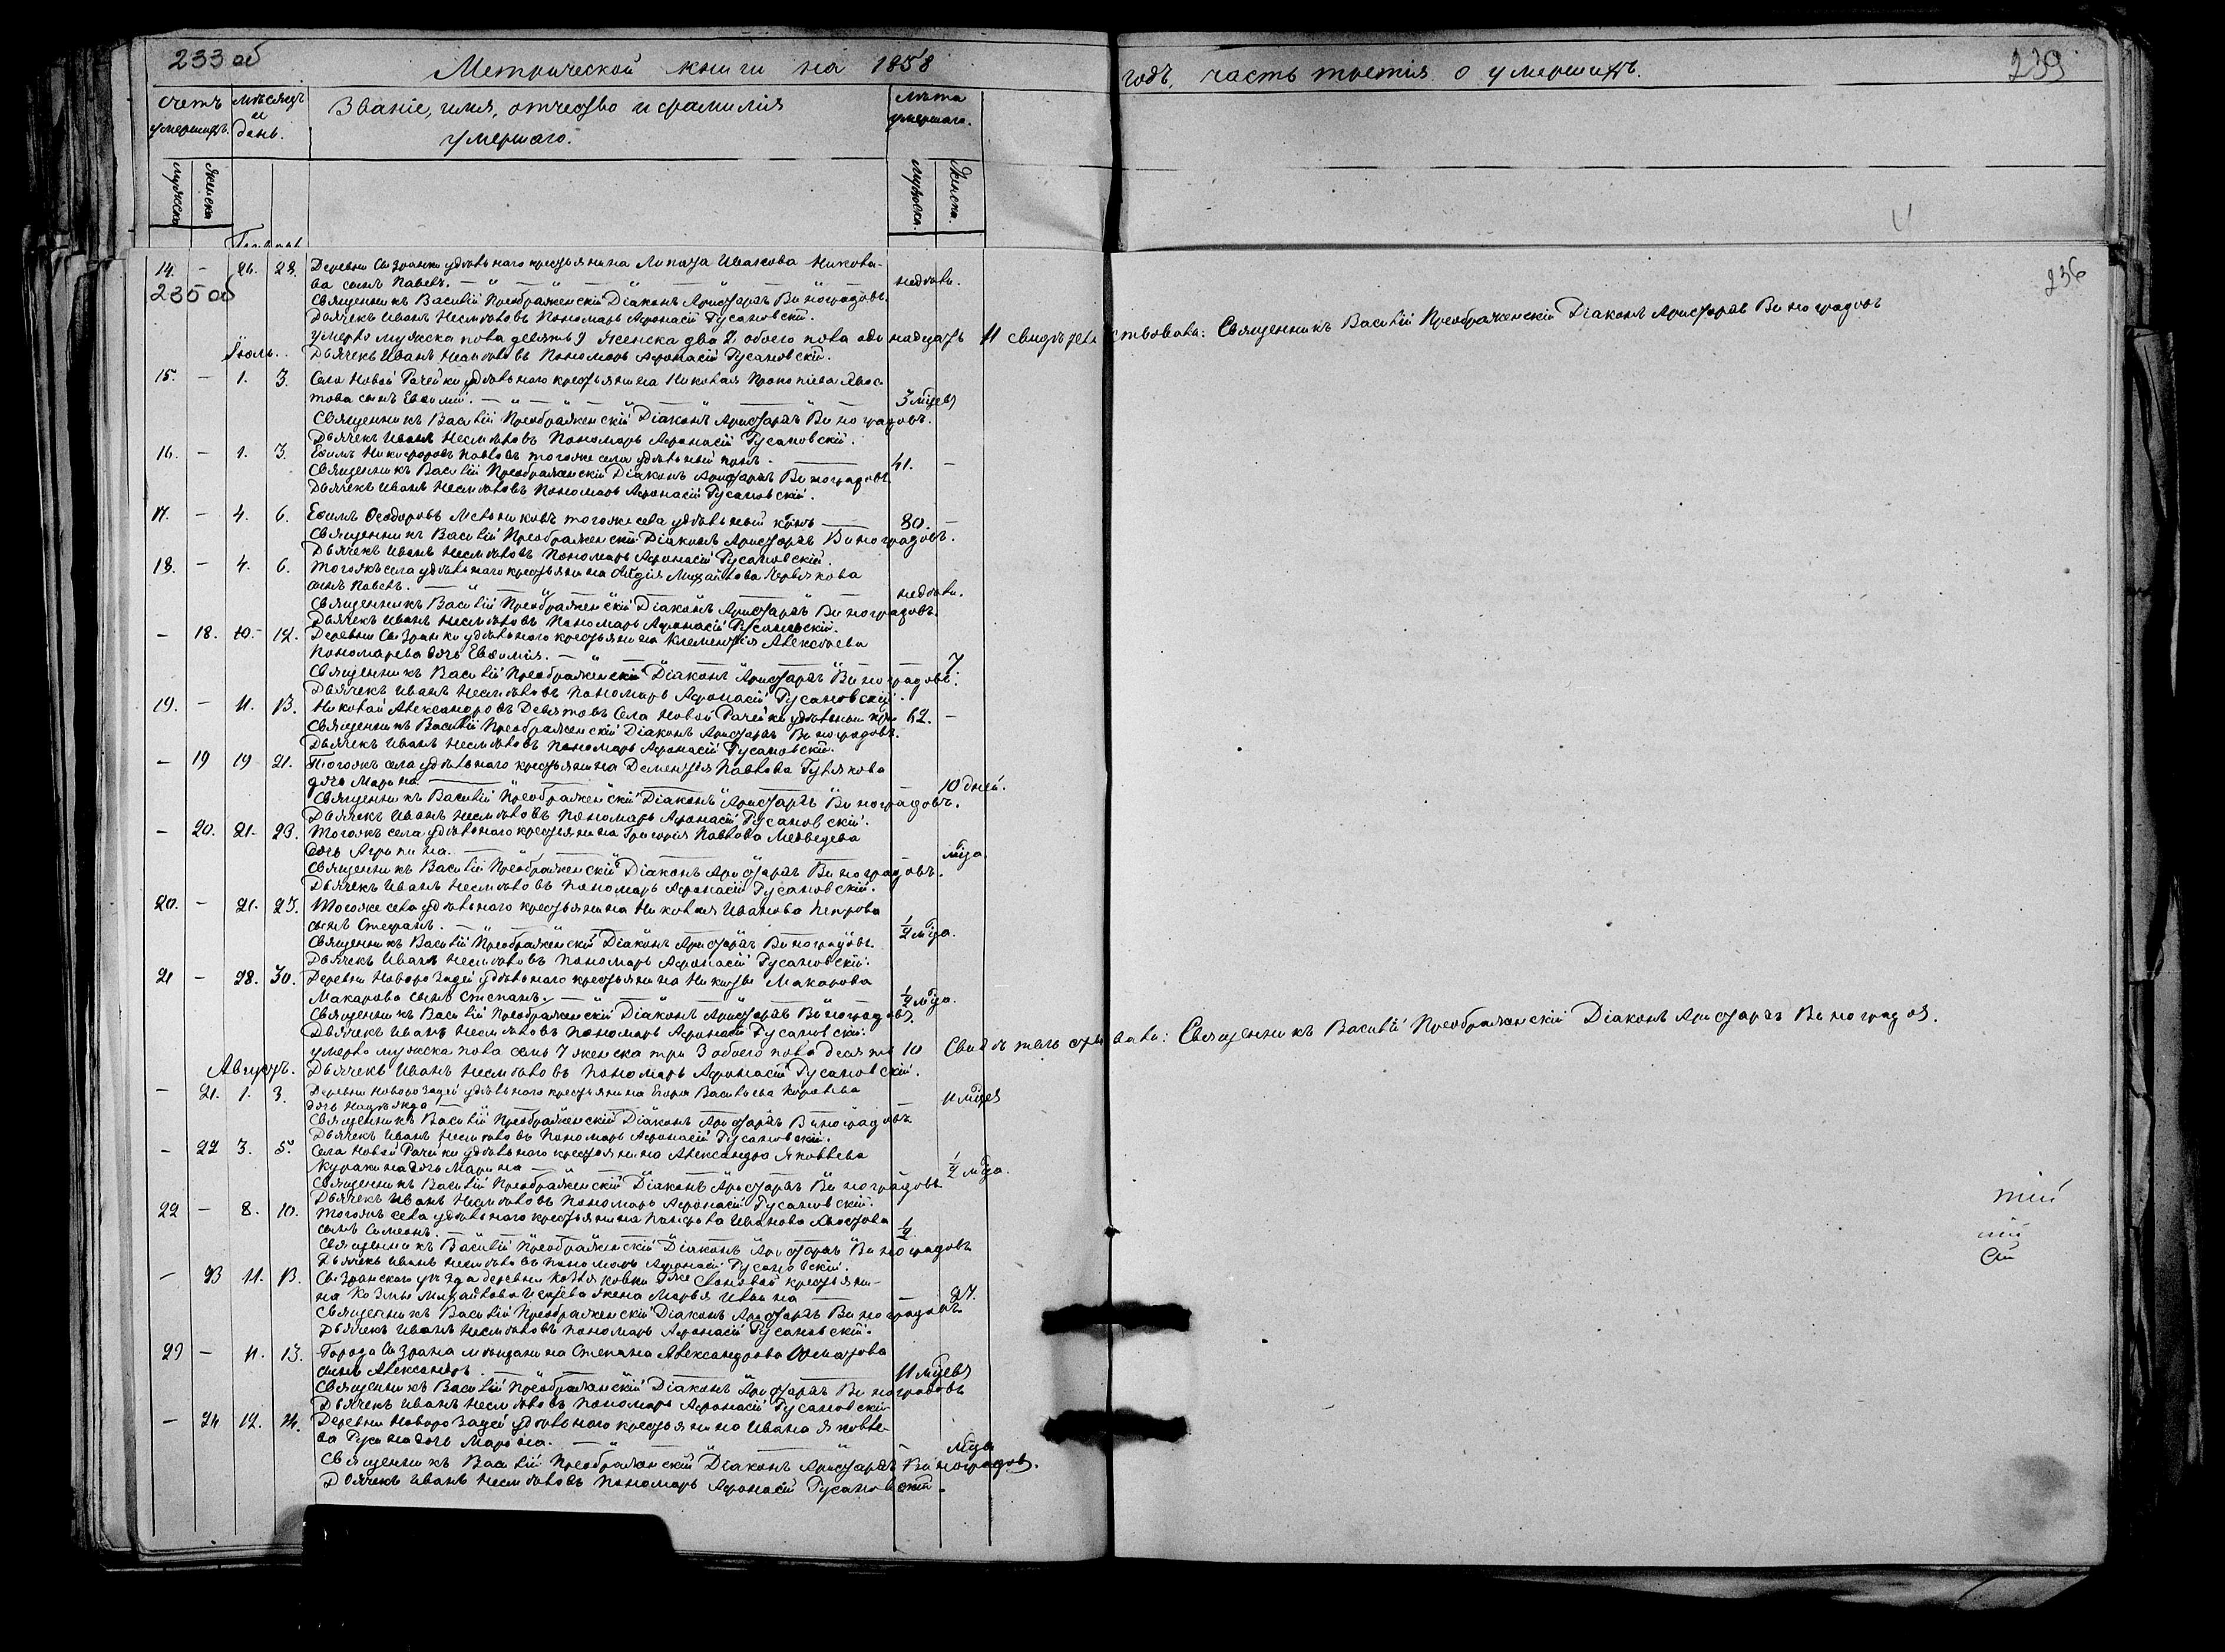 233 об
Метрической книги на 1858 годъ, часть третія о умершихъ.
239
счетъ умершихъ.
мѣсяцъ и день.
Званіе, имя, отчество и фамилія умершаго.
лѣта умершаго.
мужска
женска
мужска.
женска.
14. - 26. 28. Деревни Сызранки удѣльнаго крестьянина Иванова
сынъ Павелъ. недѣли.
235 об
236
Священникъ Василій Преображенскій Діаконъ Аристархъ Виноградовъ.
Дьячекъ Иванъ Несмѣловъ Пономарь Афонасій Русановскій.
умерло мужска пола девять 9 женска два 2 обоего пола одинадцать 11 свидѣтельствовали: Священникъ Василій Преображенскій Діаконъ Аристархъ Виноградовъ
Іюль. Дьячекъ Иванъ Несмѣловъ Пономарь Афонасій Русановскій.
15. - 1. 3. Села Новой Рачейки удѣльнаго крестьянина Николая Прокопіева Хвос
това сынъ Евѳимій. 3 мѣсяцевъ
Священникъ Василій Преображенскій Діаконъ Аристархъ Виноградовъ.
Дьячекъ Иванъ Несмѣловъ Пономарь Афонасій Русановскій.
16. - 1. 3. Ефимъ Никифоровъ Павловъ тогоже села удѣльный 41. -
Священникъ Василій Преображенскій Діаконъ Аристархъ Виноградовъ
Дьячекъ Иванъ Несмѣловъ Пономарь Афонасій Русановскій.
17. - 4. 6. Ефимъ Ѳеодоровъ Мельниковъ тогоже села удѣльный 80. -
Священникъ Василій Преображенскій Діаконъ Аристархъ Виноградовъ.
Дьячекъ Иванъ Несмѣловъ Пономарь Афонасій Русановскій.
18. - 4. 6. Тогожъ села удѣльнаго крестьянина Авдія Михайлова
сынъ Павелъ. недѣли.
Священникъ Василій Преображенскій Діаконъ Аристархъ Виноградовъ.
Дьячекъ Иванъ Несмѣловъ Пономарь Афонасій Русановскій.
- 18. 10. 12. Деревни Сызранки удѣльнаго крестьянина Клементія Алексѣева
Пономарева дочь Евѳимія. 7
Священникъ Василій Преображенскій Діаконъ Аристархъ Виноградовъ.
Дьячекъ Иванъ Несмѣловъ Пономарь Афонасій Русановскій.
19. - 11. 13. Николай Александровъ Девятовъ Села Новой Рачейки удѣльный 62. -
Священникъ Василій Преображенскій Діаконъ Аристархъ Виноградовъ.
Дьячекъ Иванъ Несмѣловъ Пономарь Афонасій Русановскій.
- 19 19 21. Тогожъ села удѣльнаго крестьянина Дементія Павлова Гулякова
дочь Марина 10 дней.
Священникъ Василій Преображенскій Діаконъ Аристархъ Виноградовъ.
Дьячекъ Иванъ Несмѣловъ Пономарь Афонасій Русановскій.
- 20. 21. 23. Тогожъ села удѣльнаго крестьянина Григорія Павлова Медведева
дочь Агрипина. года
Священникъ Василій Преображенскій Діаконъ Аристархъ Виноградовъ.
Дьячекъ Иванъ Несмѣловъ Пономарь Афонасій Русановскій.
20. - 21. 23. Тогоже села удѣльнаго крестьянина Николая Иванова Петрова
сынъ Стефанъ. 1/2 года.
Священникъ Василій Преображенскій Діаконъ Аристархъ Виноградовъ.
Дьячекъ Иванъ Несмѣловъ Пономарь Афонасій Русановскій.
21 - 28. 30. Деревни Новорозадей удѣльнаго крестьянина Никиты Макарова
Макарова сынъ Степанъ. 1/2 года.
Священникъ Василій Преображенскій Діаконъ Аристархъ Виноградовъ.
Дьячекъ Иванъ Несмѣловъ Пономарь Афонасій Русановскій.
умерло мужска пола семь 7 женска три 3 обоего пола десять 10 Свидѣтельствовали: Священникъ Василій Преображенскій Діаконъ Аристархъ Виноградовъ.
Августъ. Дьячекъ Иванъ Несмѣловъ Пономарь Афонасій Русановскій.
- 21. 1. 3. Деревни Новорозадей удѣльнаго крестьянина Егора Васильева Королева
дочь Надежда 11 мѣсяцевъ
Священникъ Василій Преображенскій Діаконъ Аристархъ Виноградовъ
Дьячекъ Иванъ Несмѣловъ Пономарь Афонасій Русановскій.
- 22 3. 5. Села Новой Рачейки удѣльнаго крестьянина Александра Яковлева
Куракина дочь Марина 1/2 года.
Священникъ Василій Преображенскій Діаконъ Аристархъ Виноградовъ
Дьячекъ Иванъ Несмѣловъ Пономарь Афонасій Русановскій.
22 - 8. 10. Тогожъ села удѣльнаго крестьянина Панфила Иванова Хвостова
сынъ Симеонъ. 1/2
Священникъ Василій Преображенскій Діаконъ Аристархъ Виноградовъ
Дьячекъ Иванъ Несмѣловъ Пономарь Афонасій Русановскій.
- 23 11. 13. Сызранскаго уѣзда деревни крестьяни-
на Козмы Михайлова жена Марья Ивановна 27.
Священникъ Василій Преображенскій Діаконъ Аристархъ Виноградовъ
Дьячекъ Иванъ Несмѣловъ Пономарь Афонасій Русановскій.
23 - 11. 13. Города Сызрана мѣщанина Степана Александрова
сынъ Александръ 11 мѣсяцевъ
Священникъ Василій Преображенскій Діаконъ Аристархъ Виноградовъ
Дьячекъ Иванъ Несмѣловъ Пономарь Афонасій Русановскій
- 24 12. 14. Деревни Новорозадей удѣльнаго крестьянина Ивана Яковле-
ва дочь года
Священникъ Василій Преображенскій Діаконъ Аристархъ Виноградовъ.
Дьячекъ Иванъ Несмѣловъ Пономарь Афонасій Русановскій.